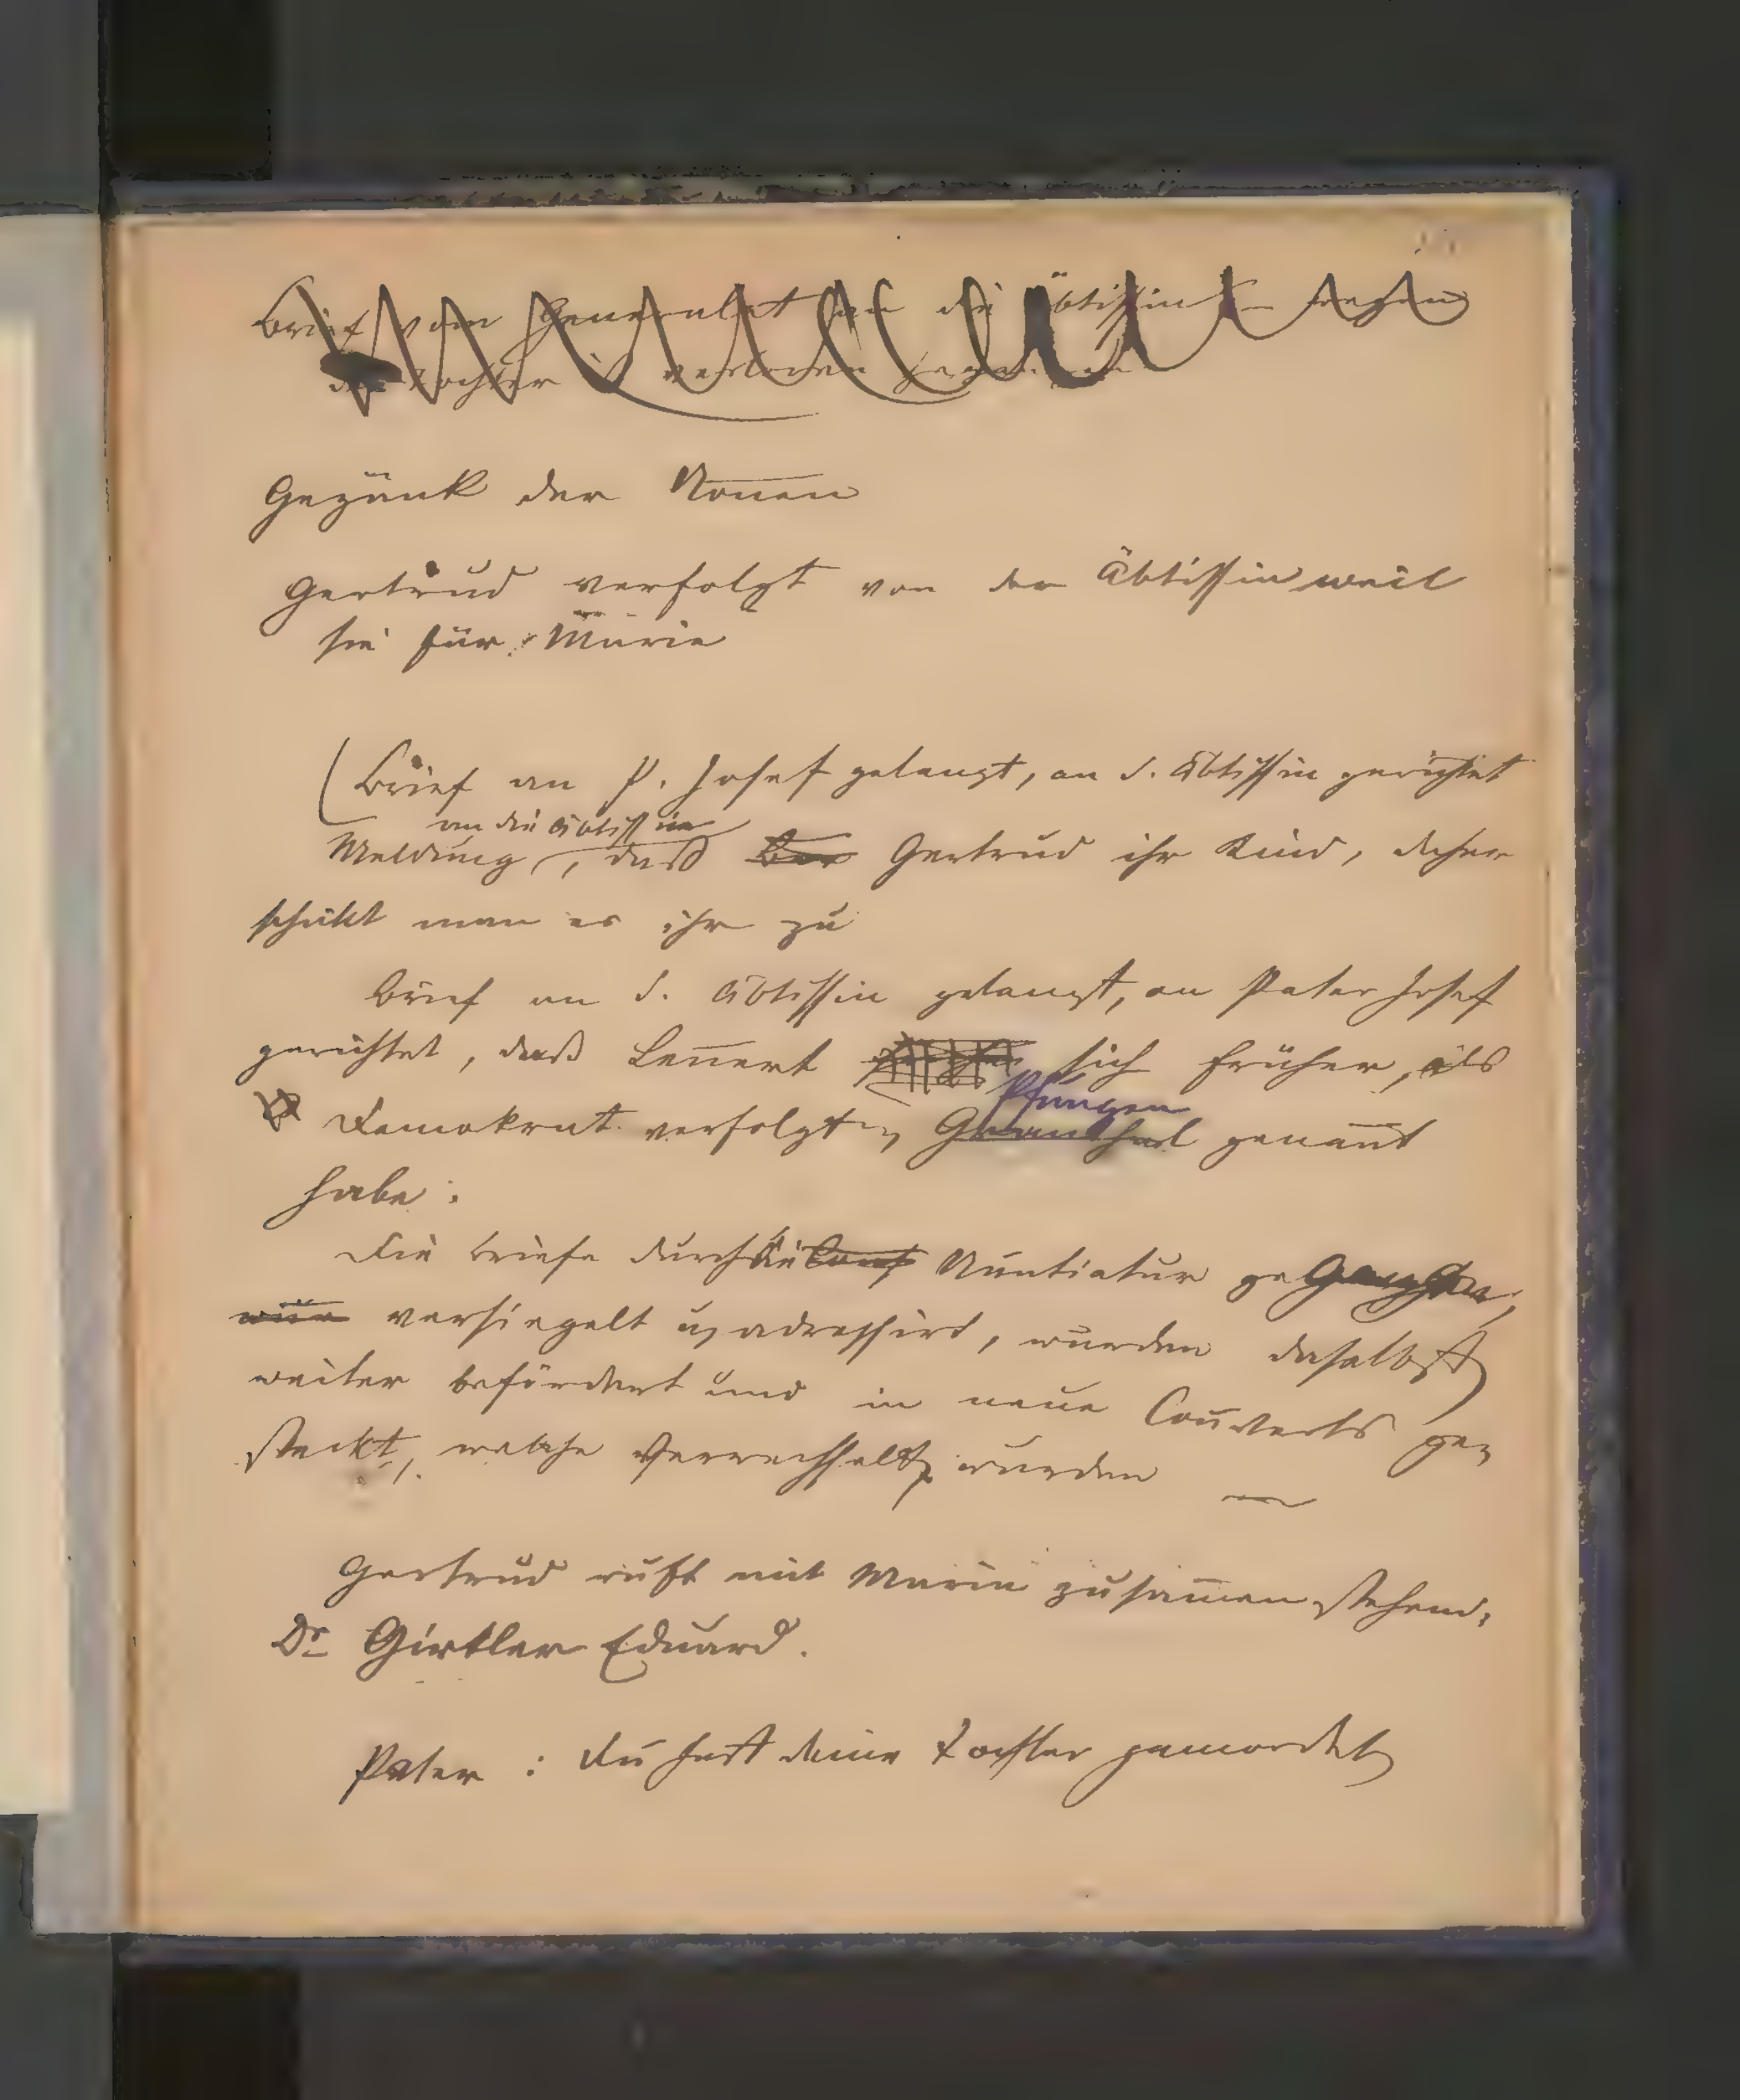 Brief vom Generalat an die Äbtissin – wegen
der Tochter verloren
Gezänk der Nonen
Gertrud verfolgt von der Äbtissin weil
sie für Marie
(Brief an P. Josef gelangt, an d. Äbtissin gerichtet
an die Äbtissin
Meldung, daß Gertrud ihr Kind, daher
schikt man es ihr zu
Brief an d. Äbtissin gelangt, an Pater Josef
gerichtet, daß Lenert sich früher, als
Demokrat verfolgt, genant
habe.
Die Briefe durch die Nuntiatur gegangen,
versiegelt u, adressirt, wurden daselbst
weiter befördert und in neue Couverts ge-
steckt, welche verwechselt wurden
Gertrud ruft mit Marie zusamen stehend,
Dr Girtler Eduard.
Pater : Du hast deine Tochter gemordet